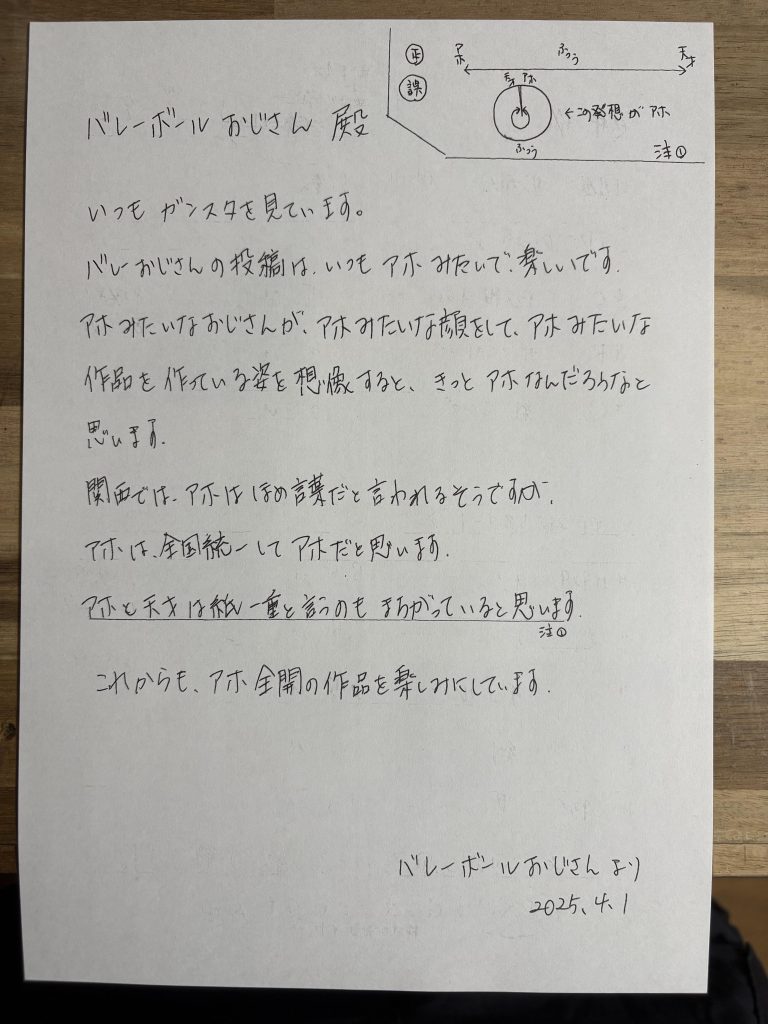 正
アホ ふつう 天才
誤
天才 アホ
ふつう
←この発想がアホ
注①
バレーボールおじさん 殿
いつも ガンスタを見ています。
バレーおじさんの投稿は、いつも アホみたいで、楽しいです.
アホみたいなおじさんが、アホみたいな顔をして、アホみたいな
作品を作っている姿を想像すると、きっと アホなんだろうなと
思います.
関西では、アホは ほめ言葉だと言われるそうですが、
アホは、全国統一して アホだと思います.
アホと天才は紙一重と言うのも まちがっていると思います.
注①
これからも、アホ全開の作品を楽しみにしています.
バレーボールおじさん より
2025.4.1